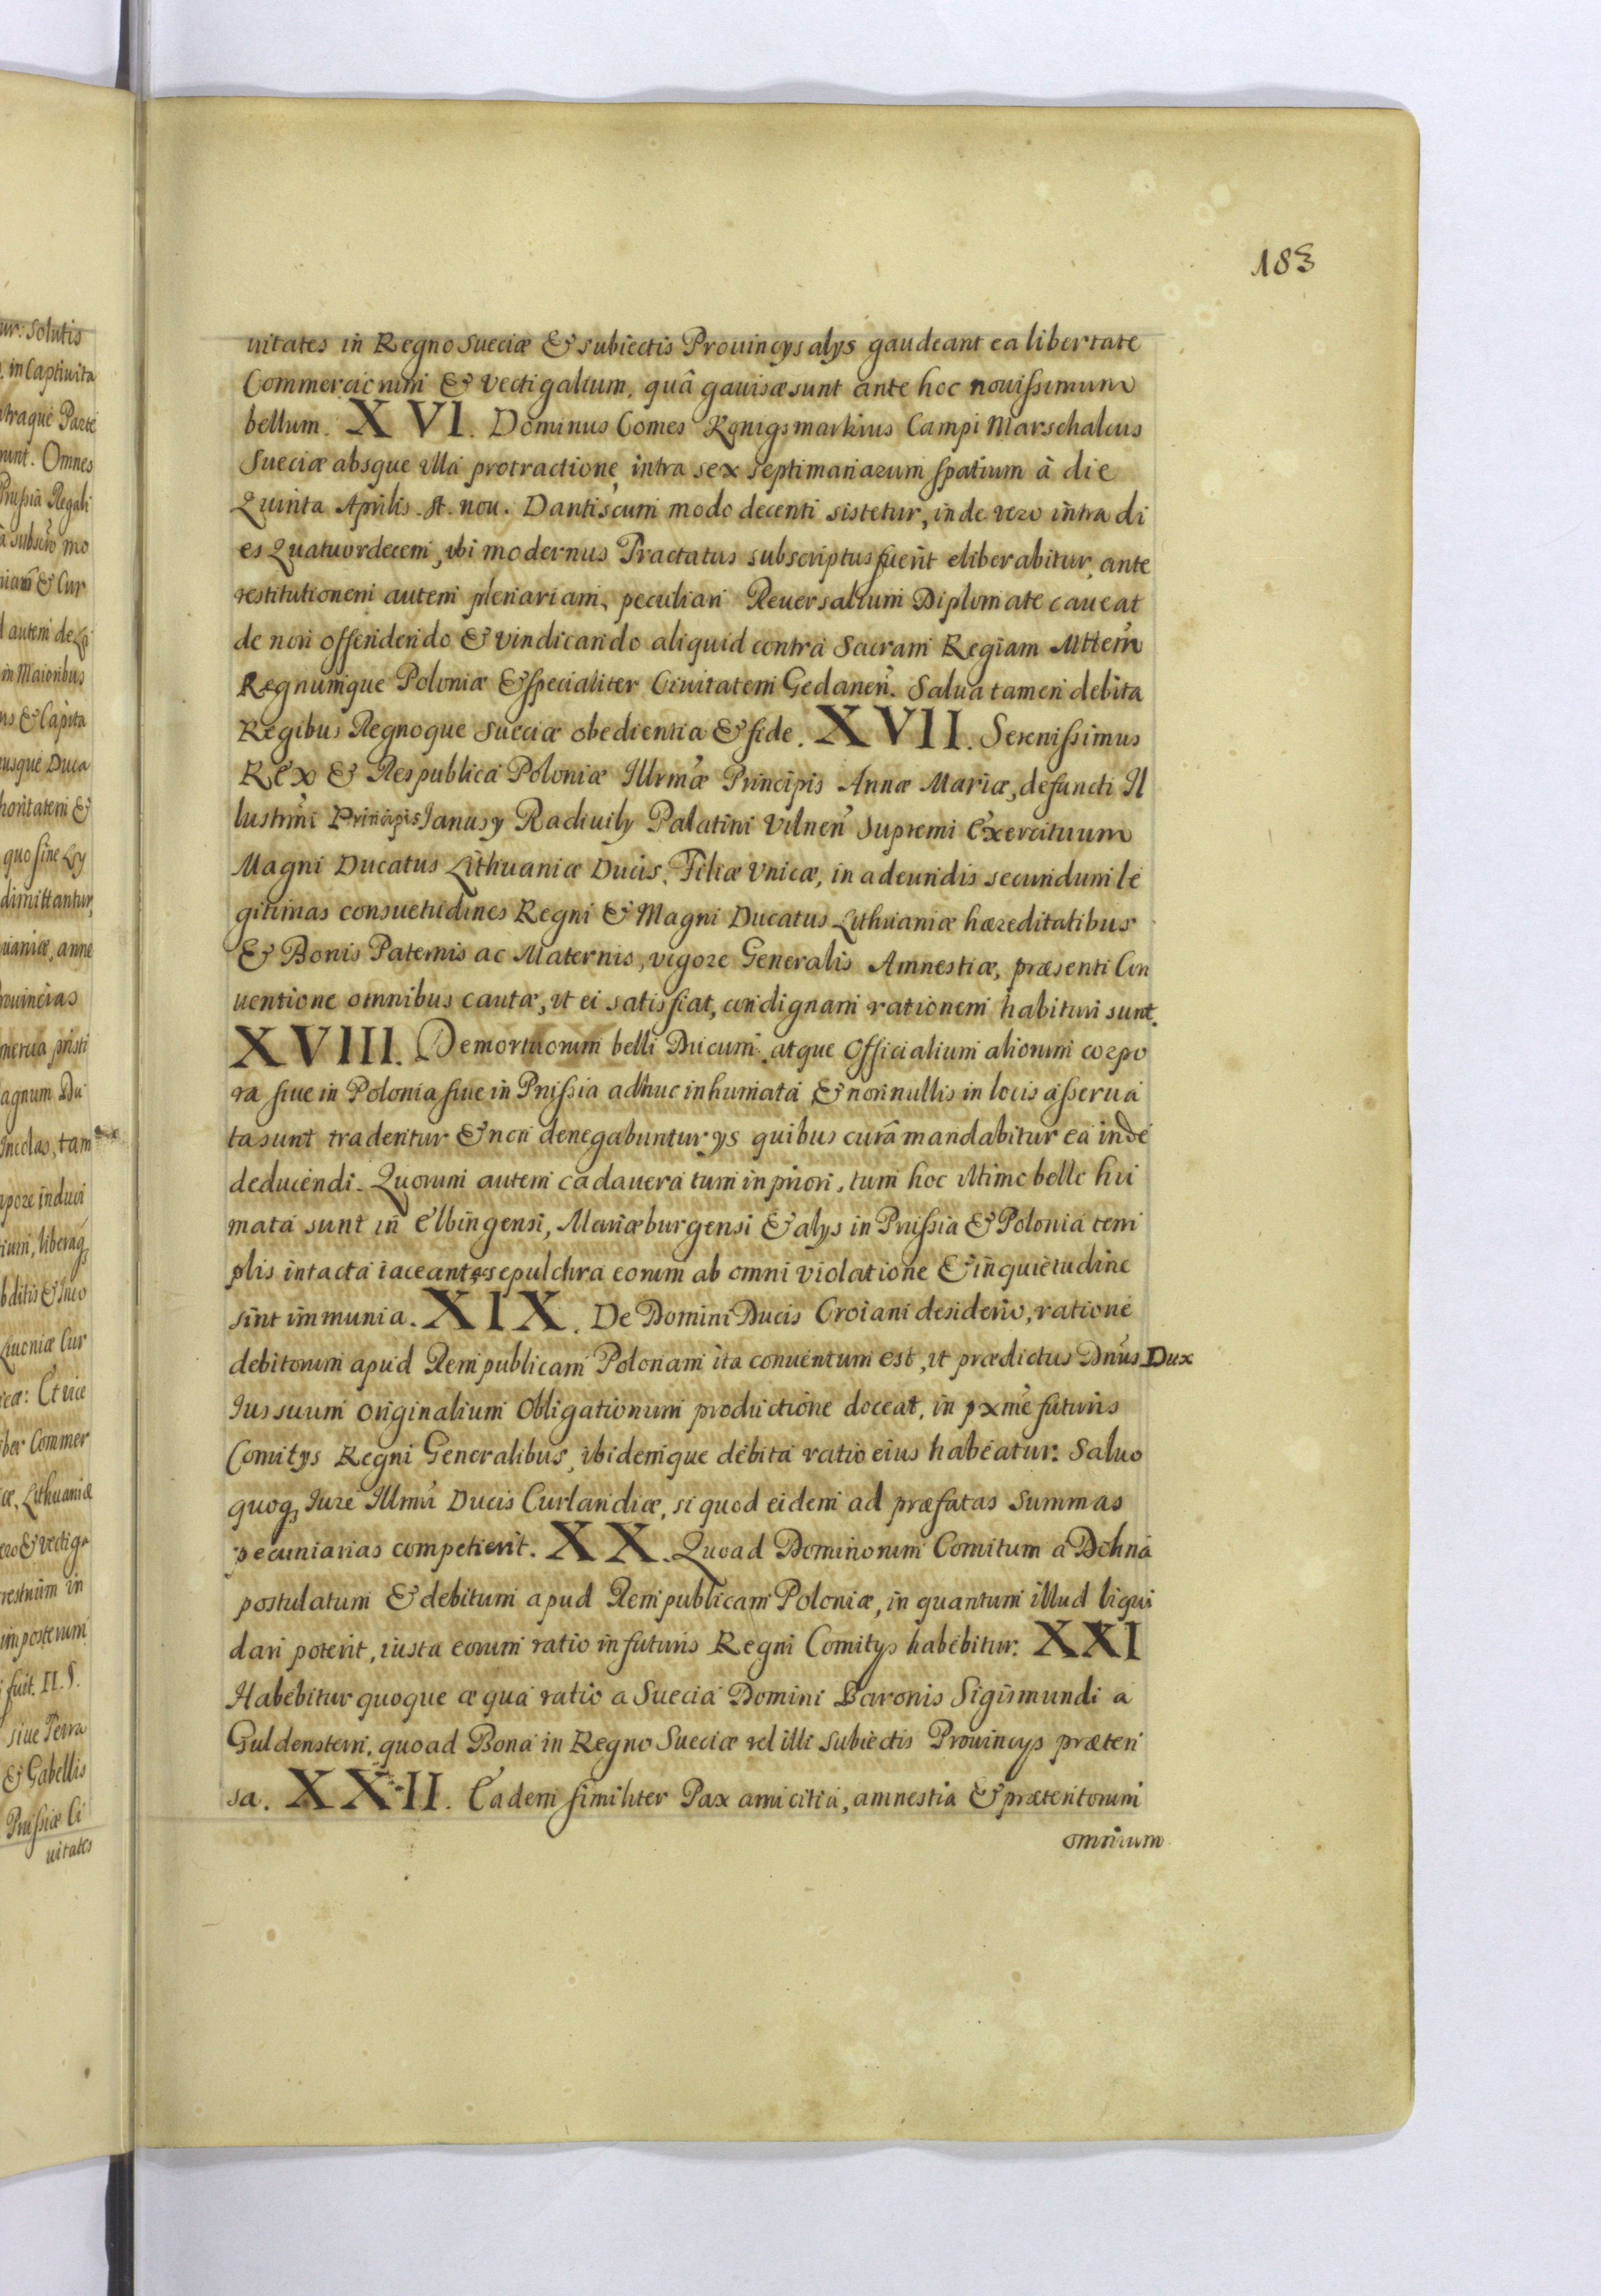 183
uitates in Regno Sueciæ & subiectis Prouincijs alijs gaudeant ea libertate
Commerciorum & vectigalium, quâ gauisæ sunt ante hoc nouissimum
bellum. XVI. Dominus Comes Konigsmarkius Campi Marschalcus
Sueciæ absque illa protractione, intra sex septimanarum spatium à die
Quinta Aprilis st. nou. Dantiscum modo decenti sistetur, inde vero intra di
es Quatuordecem, vbi modernus Tractatus subscriptus fuerit eliberabitur, ante
restitutionem autem plenariam, peculiari Reuersalium Diplomate caueat
de non offendendo & vindicando aliquid contra Sacram Regiam Mttem
Regnumque Poloniæ & specialiter Ciuitatem Gedanen. Salua tamen debita
Regibus Regnoque Sueciæ obedientia & fide. XVII. Serenissimus
Rex & Respublica Poloniæ Illrmæ Principis Annæ Mariæ, defuncti Il
lustrmi Principis Ianusij Radiuily Palatini Vilnen supremi Exercituum
Magni Ducatus Lithuaniæ Ducis, Filiæ vnicæ, in adeundis secundum le
gitimas consuetudines Regni & Magni Ducatus Lithuaniæ hæreditatibus
& Bonis Paternis ac Maternis, vigore Generalis Amnestiæ, præsenti Con
uentione omnibus cautæ, vt ei satisfiat, condignam rationem habituri sunt.
XVIII. Demortuorum belli Ducum atque Officialium aliorum corpo
ra siue in Polonia siue in Prussia adhuc inhumata & nonnullis in locis asserua
ta sunt tradentur & non denegabuntur ijs quibus cura mandabitur ea inde
deducendi. Quorum autem cadauera tum in priori, tum hoc vltimo bello hu
mata sunt in Elbingensi, Mariæburgensi & alijs in Prussia & Polonia tem
plis intacta iaceant & sepulchra eorum ab omni violatione & inquietudine
sint immunia. XIX. De Domini Ducis Croiani desiderio, ratione
debitorum apud Rempublicam Polonam ita conuentum est, vt prædictus Dnus Dux
Ius suum originalium Obligationum productione doceat, in pxme futuris
Comitijs Regni Generalibus, ibidemque debita ratio eius habeatur. Saluo
quoq3 Iure Illmi Ducis Curlandiæ, si quod eidem ad præfatas summas
pecuniarias competierit. XX. Quoad Dominorum Comitum a Dohna
postulatum & debitum apud Rempublicam Poloniæ, in quantum illud liqui
dari poterit, iusta eorum ratio in futuris Regni Comitijs habebitur. XXI
Habebitur quoque æqua ratio a Suecia Domini Baronis Sigismundi a
Guldenstern, quoad Bona in Regno Sueciæ vel illi subiectis Prouincijs præten
sa. XXII. Eadem similiter Pax amicitia, amnestia & præteritorum
omnium